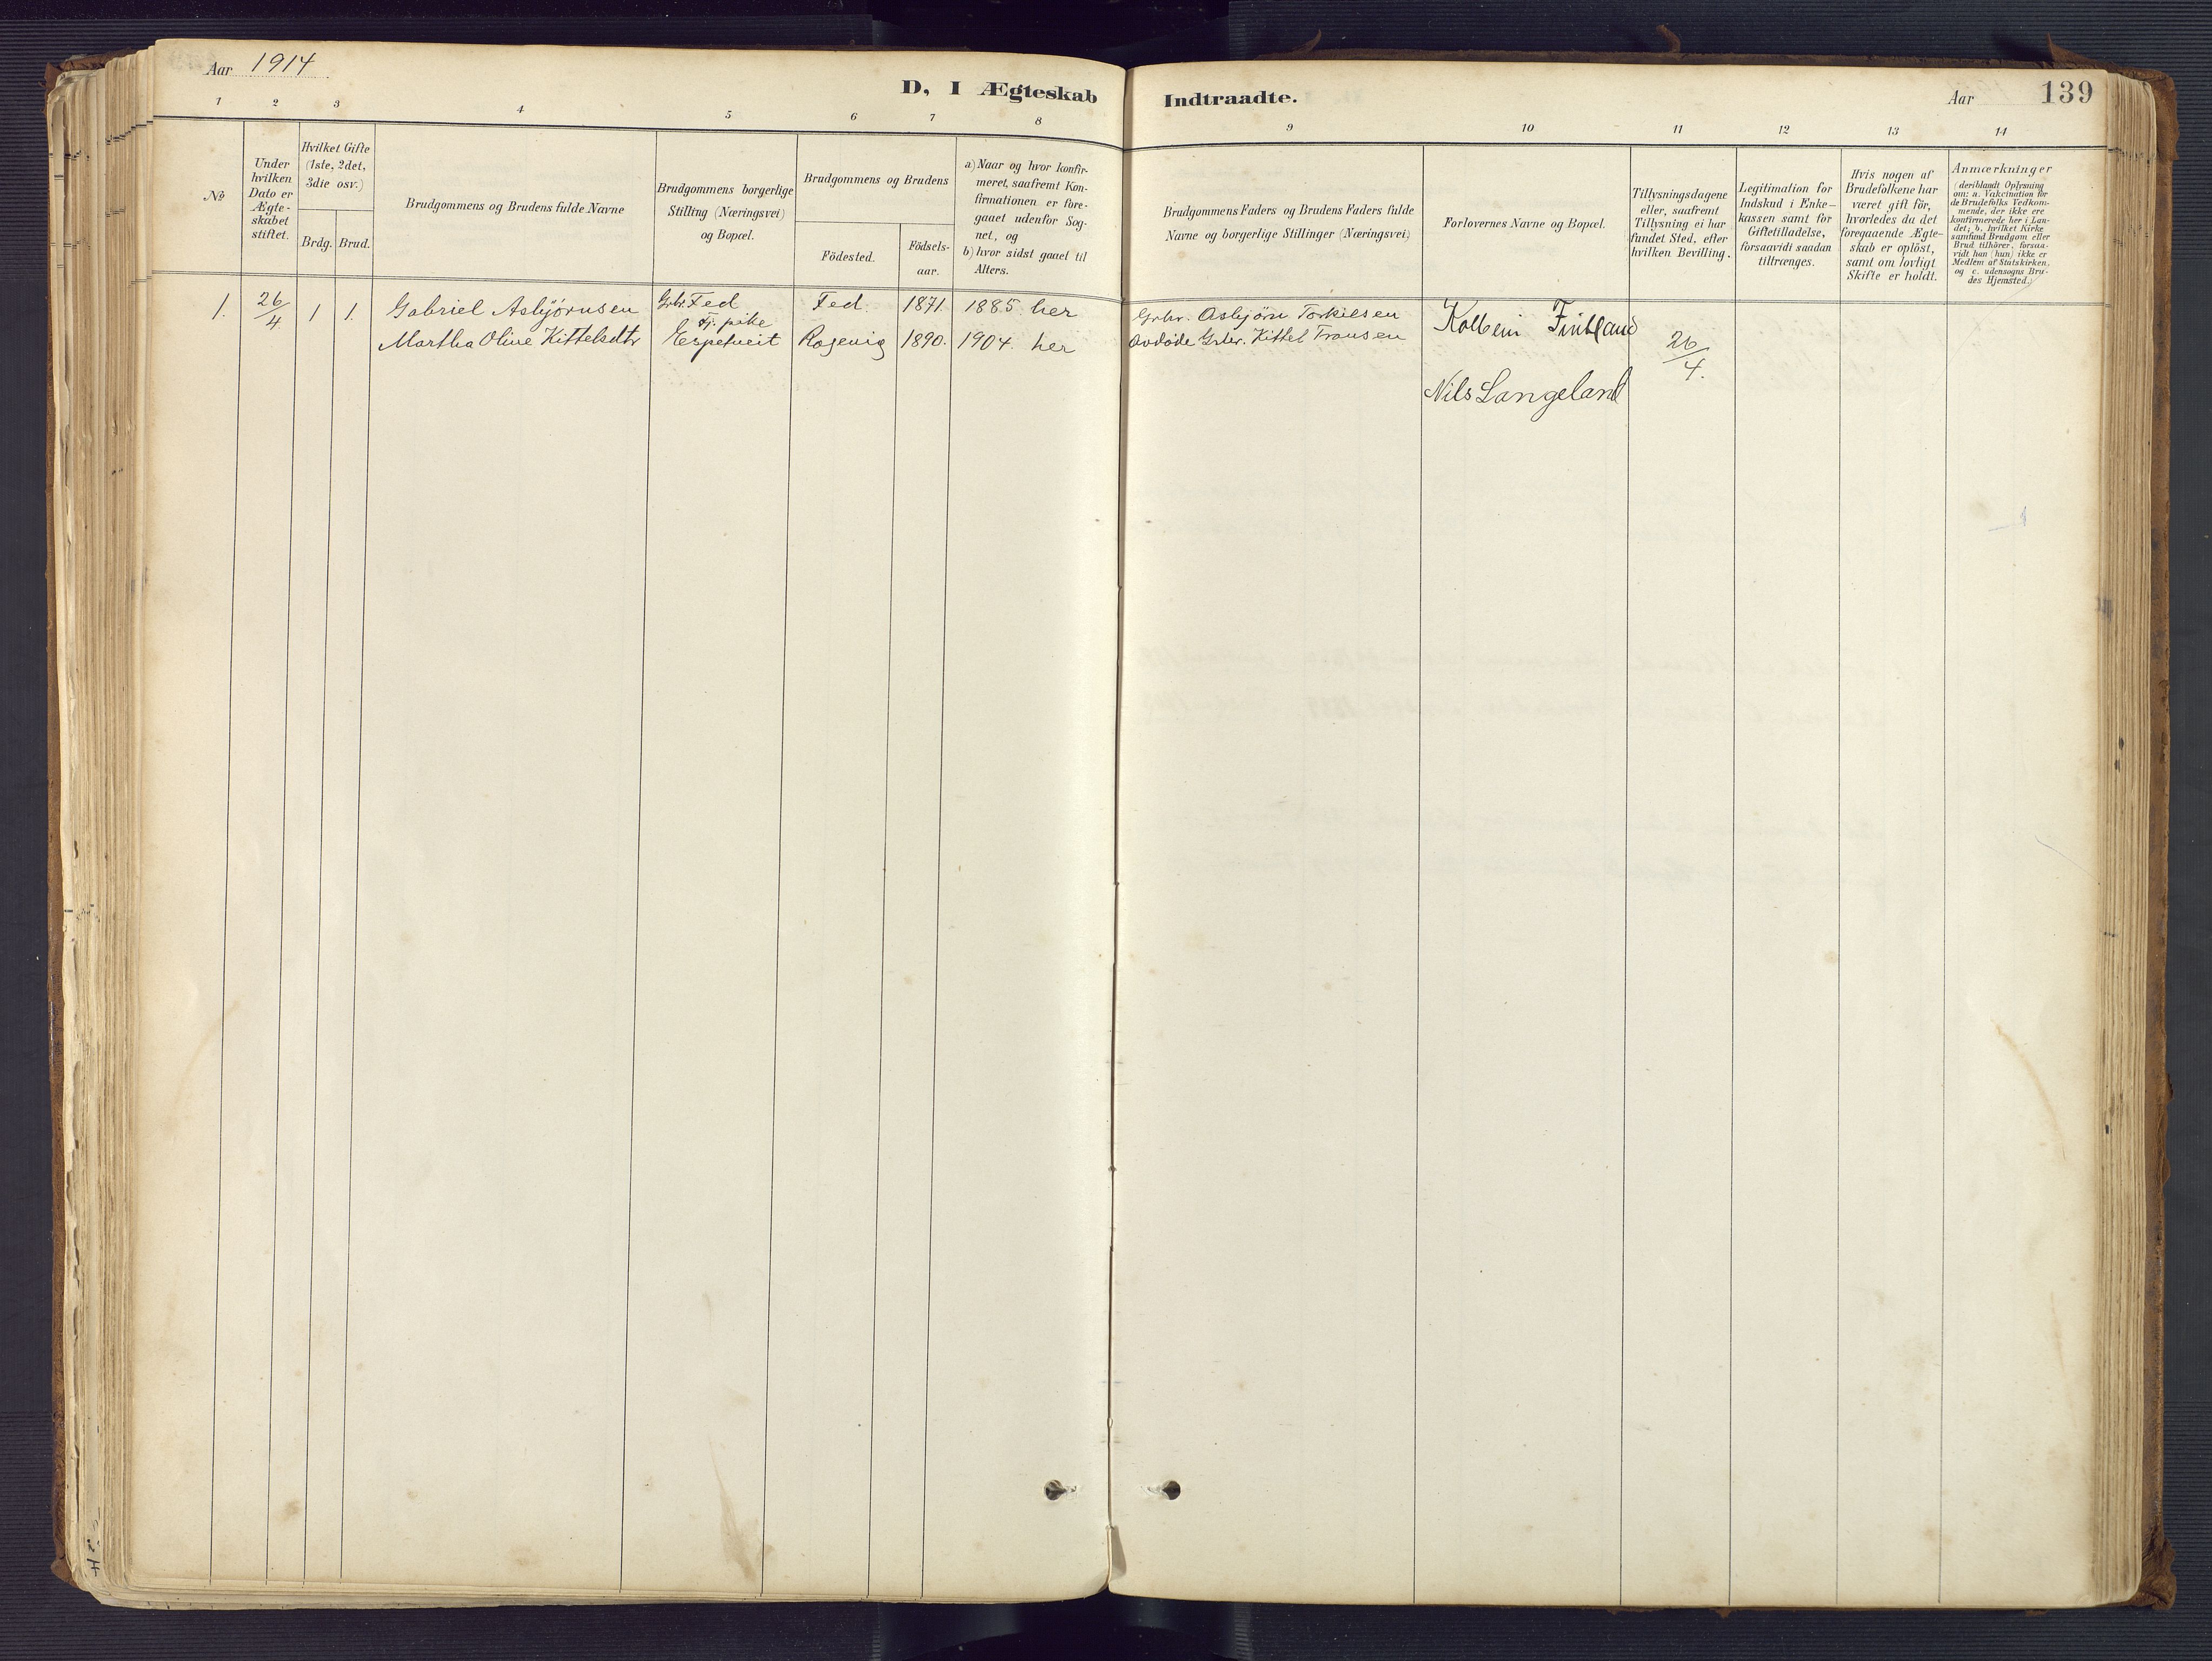 Aar 1914
D, I Ægteskab Indtraadte.
Aar 139
1 2 3 4 5 6 7 8 9 10 11 12 13 14
No
Under
hvilken
Dato er
Ægte-
skabet
stiftet.
Hvilket Gifte
(1ste, 2det,
3die osv.)
Brdg. Brud.
Brudgommens og Brudens fulde Navne
Brudgommens borgerlige
Stilling (Næringsvei)
og Bopæl.
Brudgommens og Brudens
Födested.
Födsels-
aar.
a) Naar og hvor konfir-
meret, saafremt Kon-
firmationen er fore-
gaaet udenfor Sog-
net, og
b) hvor sidst gaaet til
Alters.
Brudgommens Faders og Brudens Faders fulde
Navne og borgerlige Stillinger (Næringsvei)
Forlovernes Navne og Bopæl.
Tillysningsdagene
eller, saafremt
Tillysning ei har
fundet Sted, efter
hvilken Bevilling.
Legitimation for
Indskud i Enke-
kassen samt for
Giftetilladelse,
forsaavidt saadan
tiltrænges.
Hvis nogen af
Brudefolkene har
været gift för,
hvorledes da det
foregaaende Ægte-
skab er oplöst,
samt om lovligt
Skifte er holdt.
Anmærkninger
(deriblandt Oplysning
om: a. Vakcination for
de Brudefolks Vedkom-
mende, der ikke ere
konfirmerede her i Lan-
det; b. hvilket Kirke
samfund Brudgom eller
Brud tilhörer, forsaa-
vidt han (hun) ikke er
Medlem af Statskirken,
og c. udensogns Bru-
des Hjemsted.)
1. 26/4 1 1. Gabriel Asbjørnsen Grbr. Fed Fed. 1871. 1885 her Grbr. Asbjørn Torkilsen
Martha Oline Kittelsdtr Tj. pike
Espetveit Rosevig 1890. 1904. her Avdøde Grbr. Kittel Fransen
Kolbein
Nils Langeland
26/4.